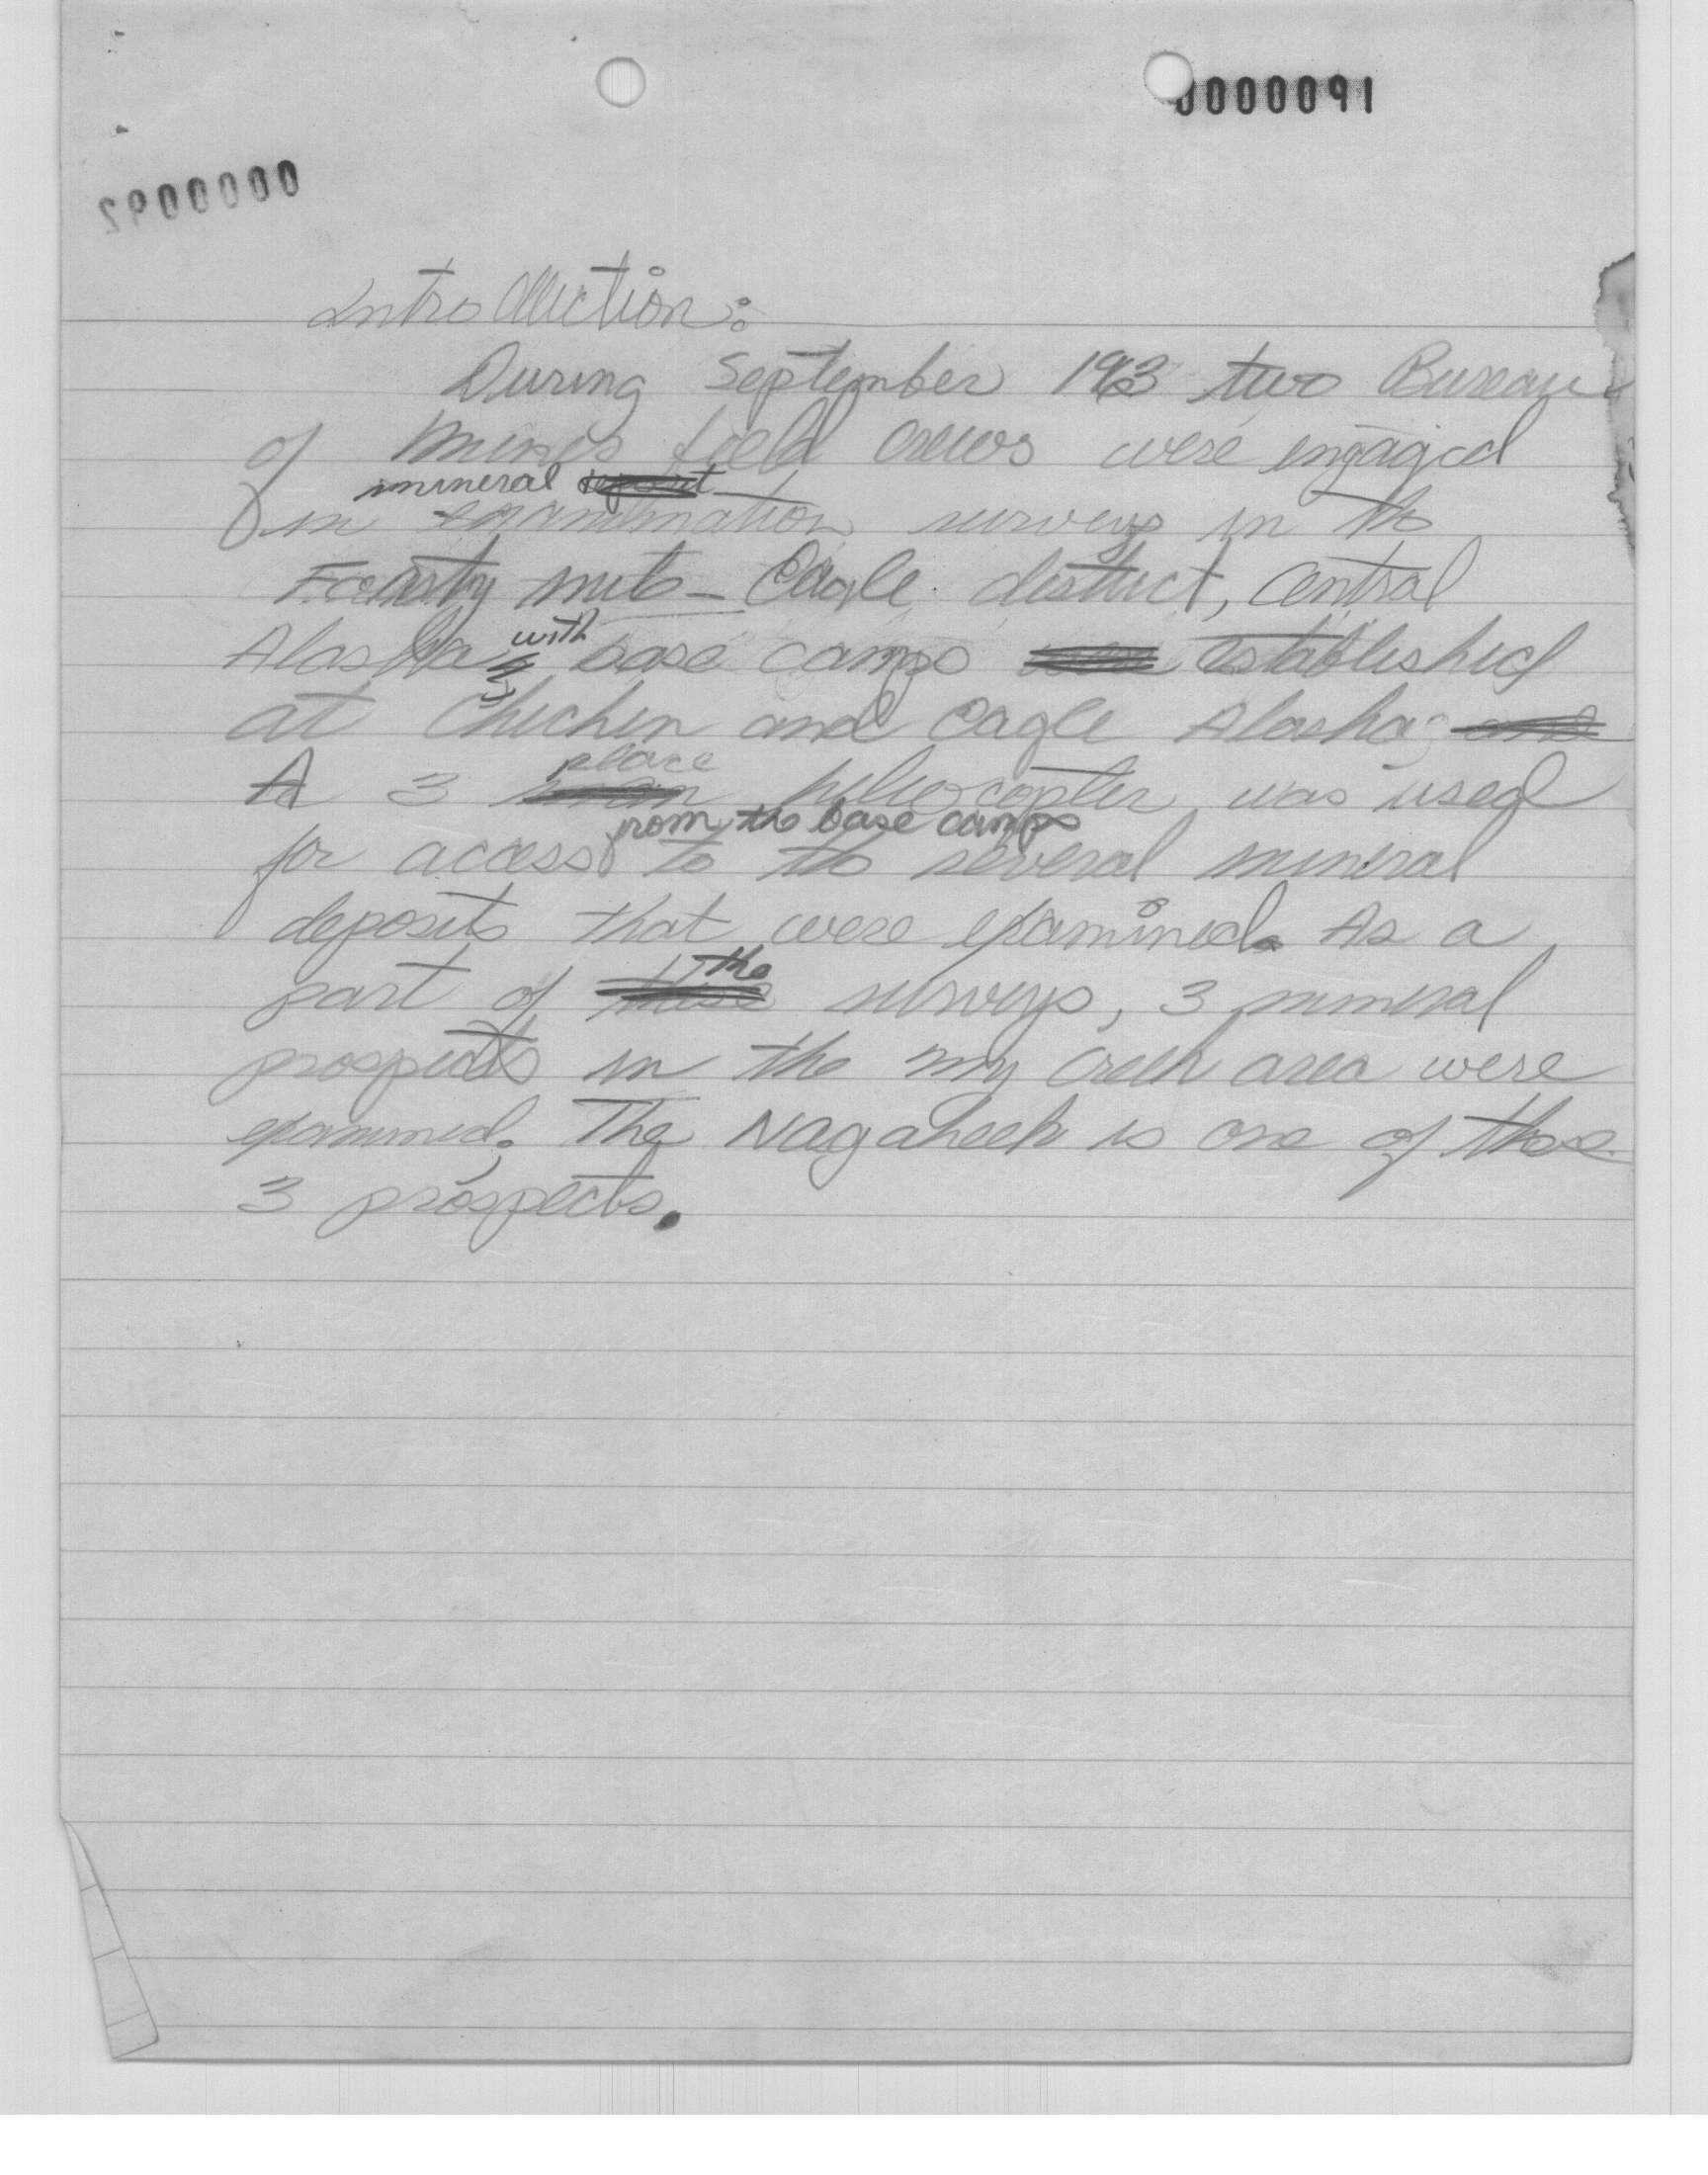 0000091
0000092
Introduction:
During September 19 3 two Bureau
of Mines field crews were engaged
mineral
in examination surveys in the
Fourty mile - Eagle district, Central
with
Alaska, base camps established
at Chicken and Eagle Alaska
place
A 3 heliocopter was used
from the base camps
for access to the several mineral
deposits that were examined. As a
the
part of surveys, 3 mineral
prospects in the my creek area were
examined. The Nagaheek is one of these
3 prospects.